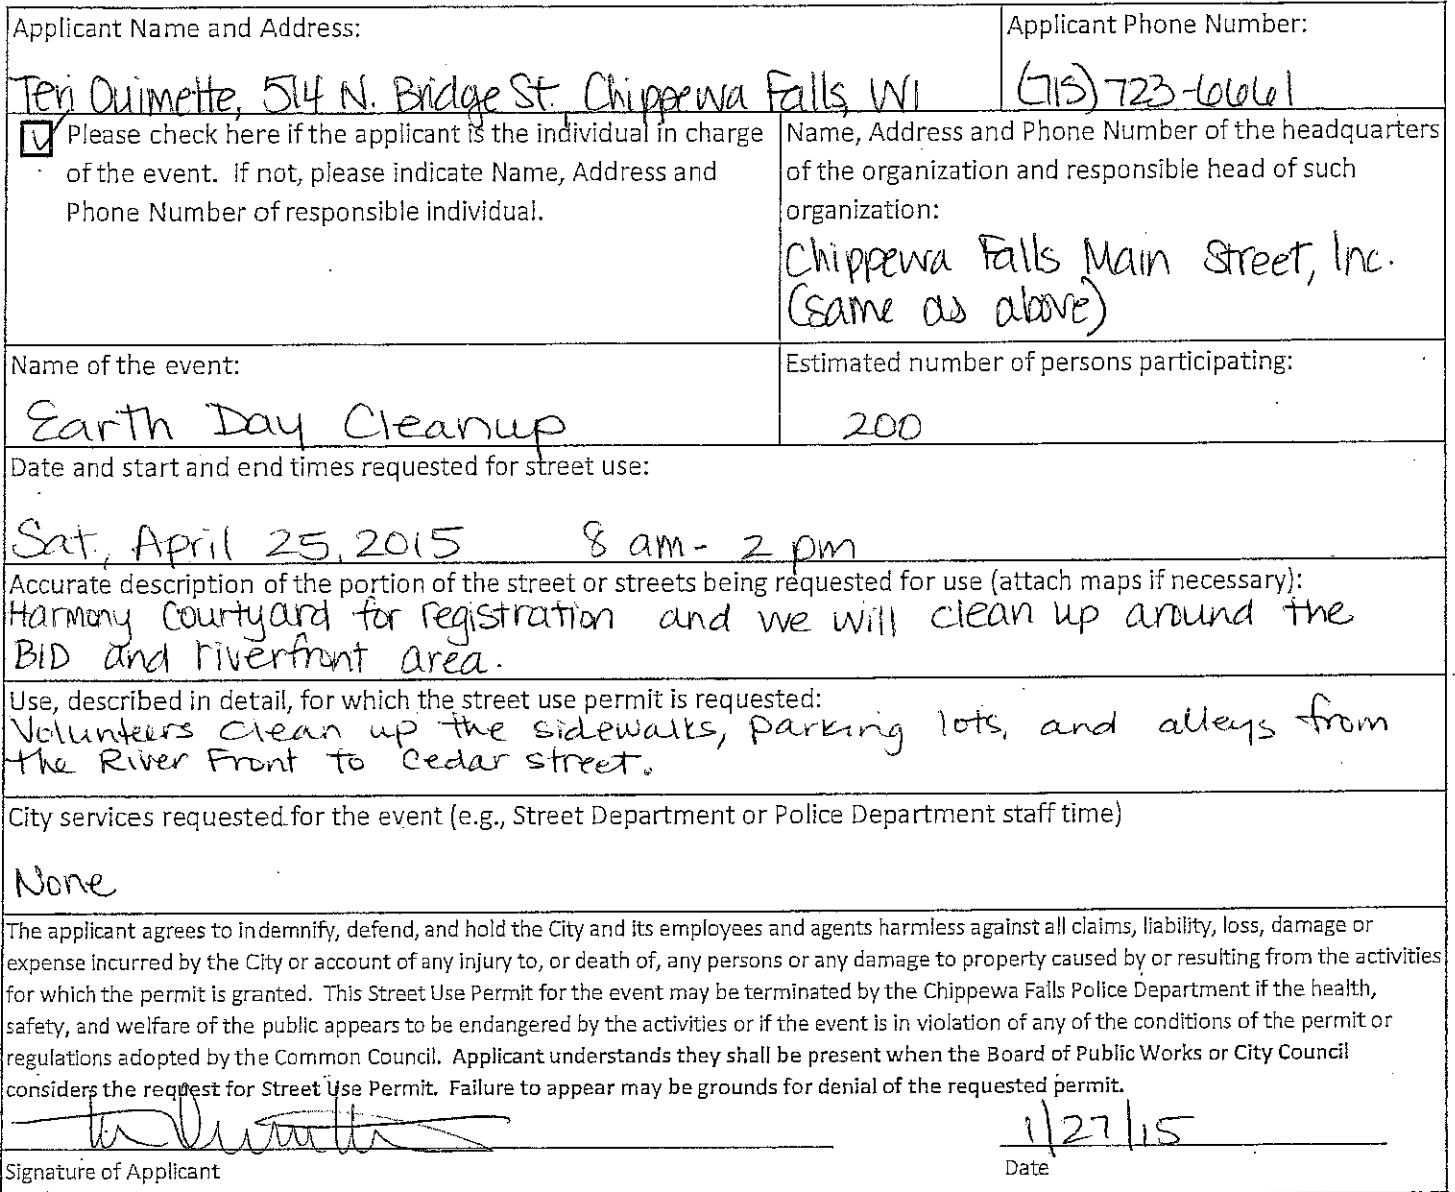 Applicant Name and Address:
Applicant Phone Number:
Teri Ouimette, 514 N. Bridge St. Chippewa Falls, WI
(715) 723-6661
Please check here if the applicant is the individual in charge
of the event. If not, please indicate Name, Address and
Phone Number of responsible individual.
Name, Address and Phone Number of the headquarters
of the organization and responsible head of such
organization:
Chippewa Falls Main Street, Inc.
(same as above)
Name of the event:
Earth Day Cleanup
Estimated number of persons participating:
200
Date and start and end times requested for street use:
Sat., April 25, 2015 8 am - 2 pm
Accurate description of the portion of the street or streets being requested for use (attach maps if necessary):
Harmony Courtyard for registration and we will clean up around the
BID and riverfront area.
Use, described in detail, for which the street use permit is requested:
Volunteers clean up the sidewalks, parking lots, and alleys from
the River Front to Cedar street.
City services requested for the event (e.g., Street Department or Police Department staff time)
None
The applicant agrees to indemnify, defend, and hold the City and its employees and agents harmless against all claims, liability, loss, damage or
expense incurred by the City or account of any injury to, or death of, any persons or any damage to property caused by or resulting from the activities
for which the permit is granted. This Street Use Permit for the event may be terminated by the Chippewa Falls Police Department if the health,
safety, and welfare of the public appears to be endangered by the activities or if the event is in violation of any of the conditions of the permit or
regulations adopted by the Common Council. Applicant understands they shall be present when the Board of Public Works or City Council
considers the request for Street Use Permit. Failure to appear may be grounds for denial of the requested permit.
1/27/15
Signature of Applicant
Date